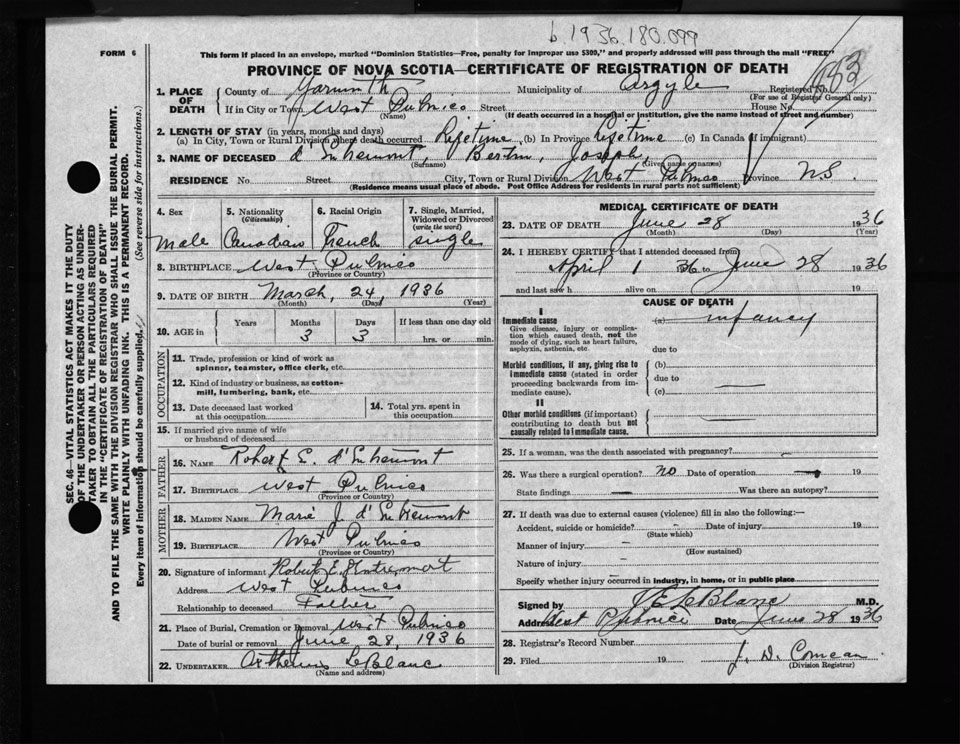 b 1936.180.099
FORM 6
This form if placed in an envelope, marked "Dominion Statistics—Free, penalty for improper use $300," and properly addressed will pass through the mail "FREE"
PROVINCE OF NOVA SCOTIA—CERTIFICATE OF REGISTRATION OF DEATH
1. PLACE OF DEATH
County of Yarmouth Municipality of Argyle Registered No.
(For use of Registrar General only)
If in City or Town West Pubnico Street House No.
(If death occurred in a hospital or institution, give the name instead of street and number)
2. LENGTH OF STAY (in years, months and days)
(a) In City, Town or Rural Division where death occurred Lifetime (b) In Province Lifetime (c) In Canada (if immigrant)
3. NAME OF DECEASED d'Entremont, Bertin, Joseph
(Surname) (Given name or names)
RESIDENCE No. Street City, Town or Rural Division West Pubnico Province N.S.
(Residence means usual place of abode. Post Office Address for residents in rural parts not sufficient)
4. Sex
Male
5. Nationality (Citizenship)
Canadian
6. Racial Origin
French
7. Single, Married, Widowed or Divorced (write the word)
single
8. BIRTHPLACE West Pubnico
(Province or Country)
9. DATE OF BIRTH March, 24, 1936
(Month) (Day) (Year)
10. AGE in
Years Months Days If less than one day old
3 3 hrs. or min.
OCCUPATION
11. Trade, profession or kind of work as spinner, teamster, office clerk, etc.
12. Kind of industry or business, as cotton-mill, lumbering, bank, etc.
13. Date deceased last worked at this occupation
14. Total yrs. spent in this occupation
15. If married give name of wife or husband of deceased
FATHER
16. NAME Robert E. d'Entremont
17. BIRTHPLACE West Pubnico
(Province or Country)
MOTHER
18. MAIDEN NAME Marie J. d'Entremont
19. BIRTHPLACE West Pubnico
(Province or Country)
20. Signature of informant Robert E. Entremont
Address West Pubnico
Relationship to deceased Father
21. Place of Burial, Cremation or Removal West Pubnico
Date of burial or removal June 28, 1936
22. UNDERTAKER LeBlanc
(Name and address)
MEDICAL CERTIFICATE OF DEATH
23. DATE OF DEATH June 28 1936
(Month) (Day) (Year)
24. I HEREBY CERTIFY that I attended deceased from
April 1 36 to June 28 1936
and last saw h alive on 19
CAUSE OF DEATH
I
Immediate cause (a) infancy
Give disease, injury or complication which caused death, not the mode of dying, such as heart failure, asphyxia, asthenia, etc.
due to
Morbid conditions, if any, giving rise to immediate cause (stated in order proceeding backwards from immediate cause).
(b)
due to
(c)
II
Other morbid conditions (if important) contributing to death but not causally related to immediate cause.
25. If a woman, was the death associated with pregnancy?
26. Was there a surgical operation? no Date of operation 19
State findings Was there an autopsy?
27. If death was due to external causes (violence) fill in also the following:—
Accident, suicide or homicide? Date of injury 19
(State which)
Manner of injury
(How sustained)
Nature of injury
Specify whether injury occurred in industry, in home, or in public place
Signed by J E LeBlanc M.D.
Address West Pubnico Date June 28 1936
28. Registrar's Record Number
29. Filed 19 J. D. Comeau
(Division Registrar)
SEC. 46—VITAL STATISTICS ACT MAKES IT THE DUTY
OF THE UNDERTAKER OR PERSON ACTING AS UNDER-
TAKER TO OBTAIN ALL THE PARTICULARS REQUIRED
IN THE "CERTIFICATE OF REGISTRATION OF DEATH"
AND TO FILE THE SAME WITH THE DIVISION REGISTRAR WHO SHALL ISSUE THE BURIAL PERMIT.
WRITE PLAINLY WITH UNFADING INK. THIS IS A PERMANENT RECORD.
Every item of information should be carefully supplied. (See reverse side for instructions.)